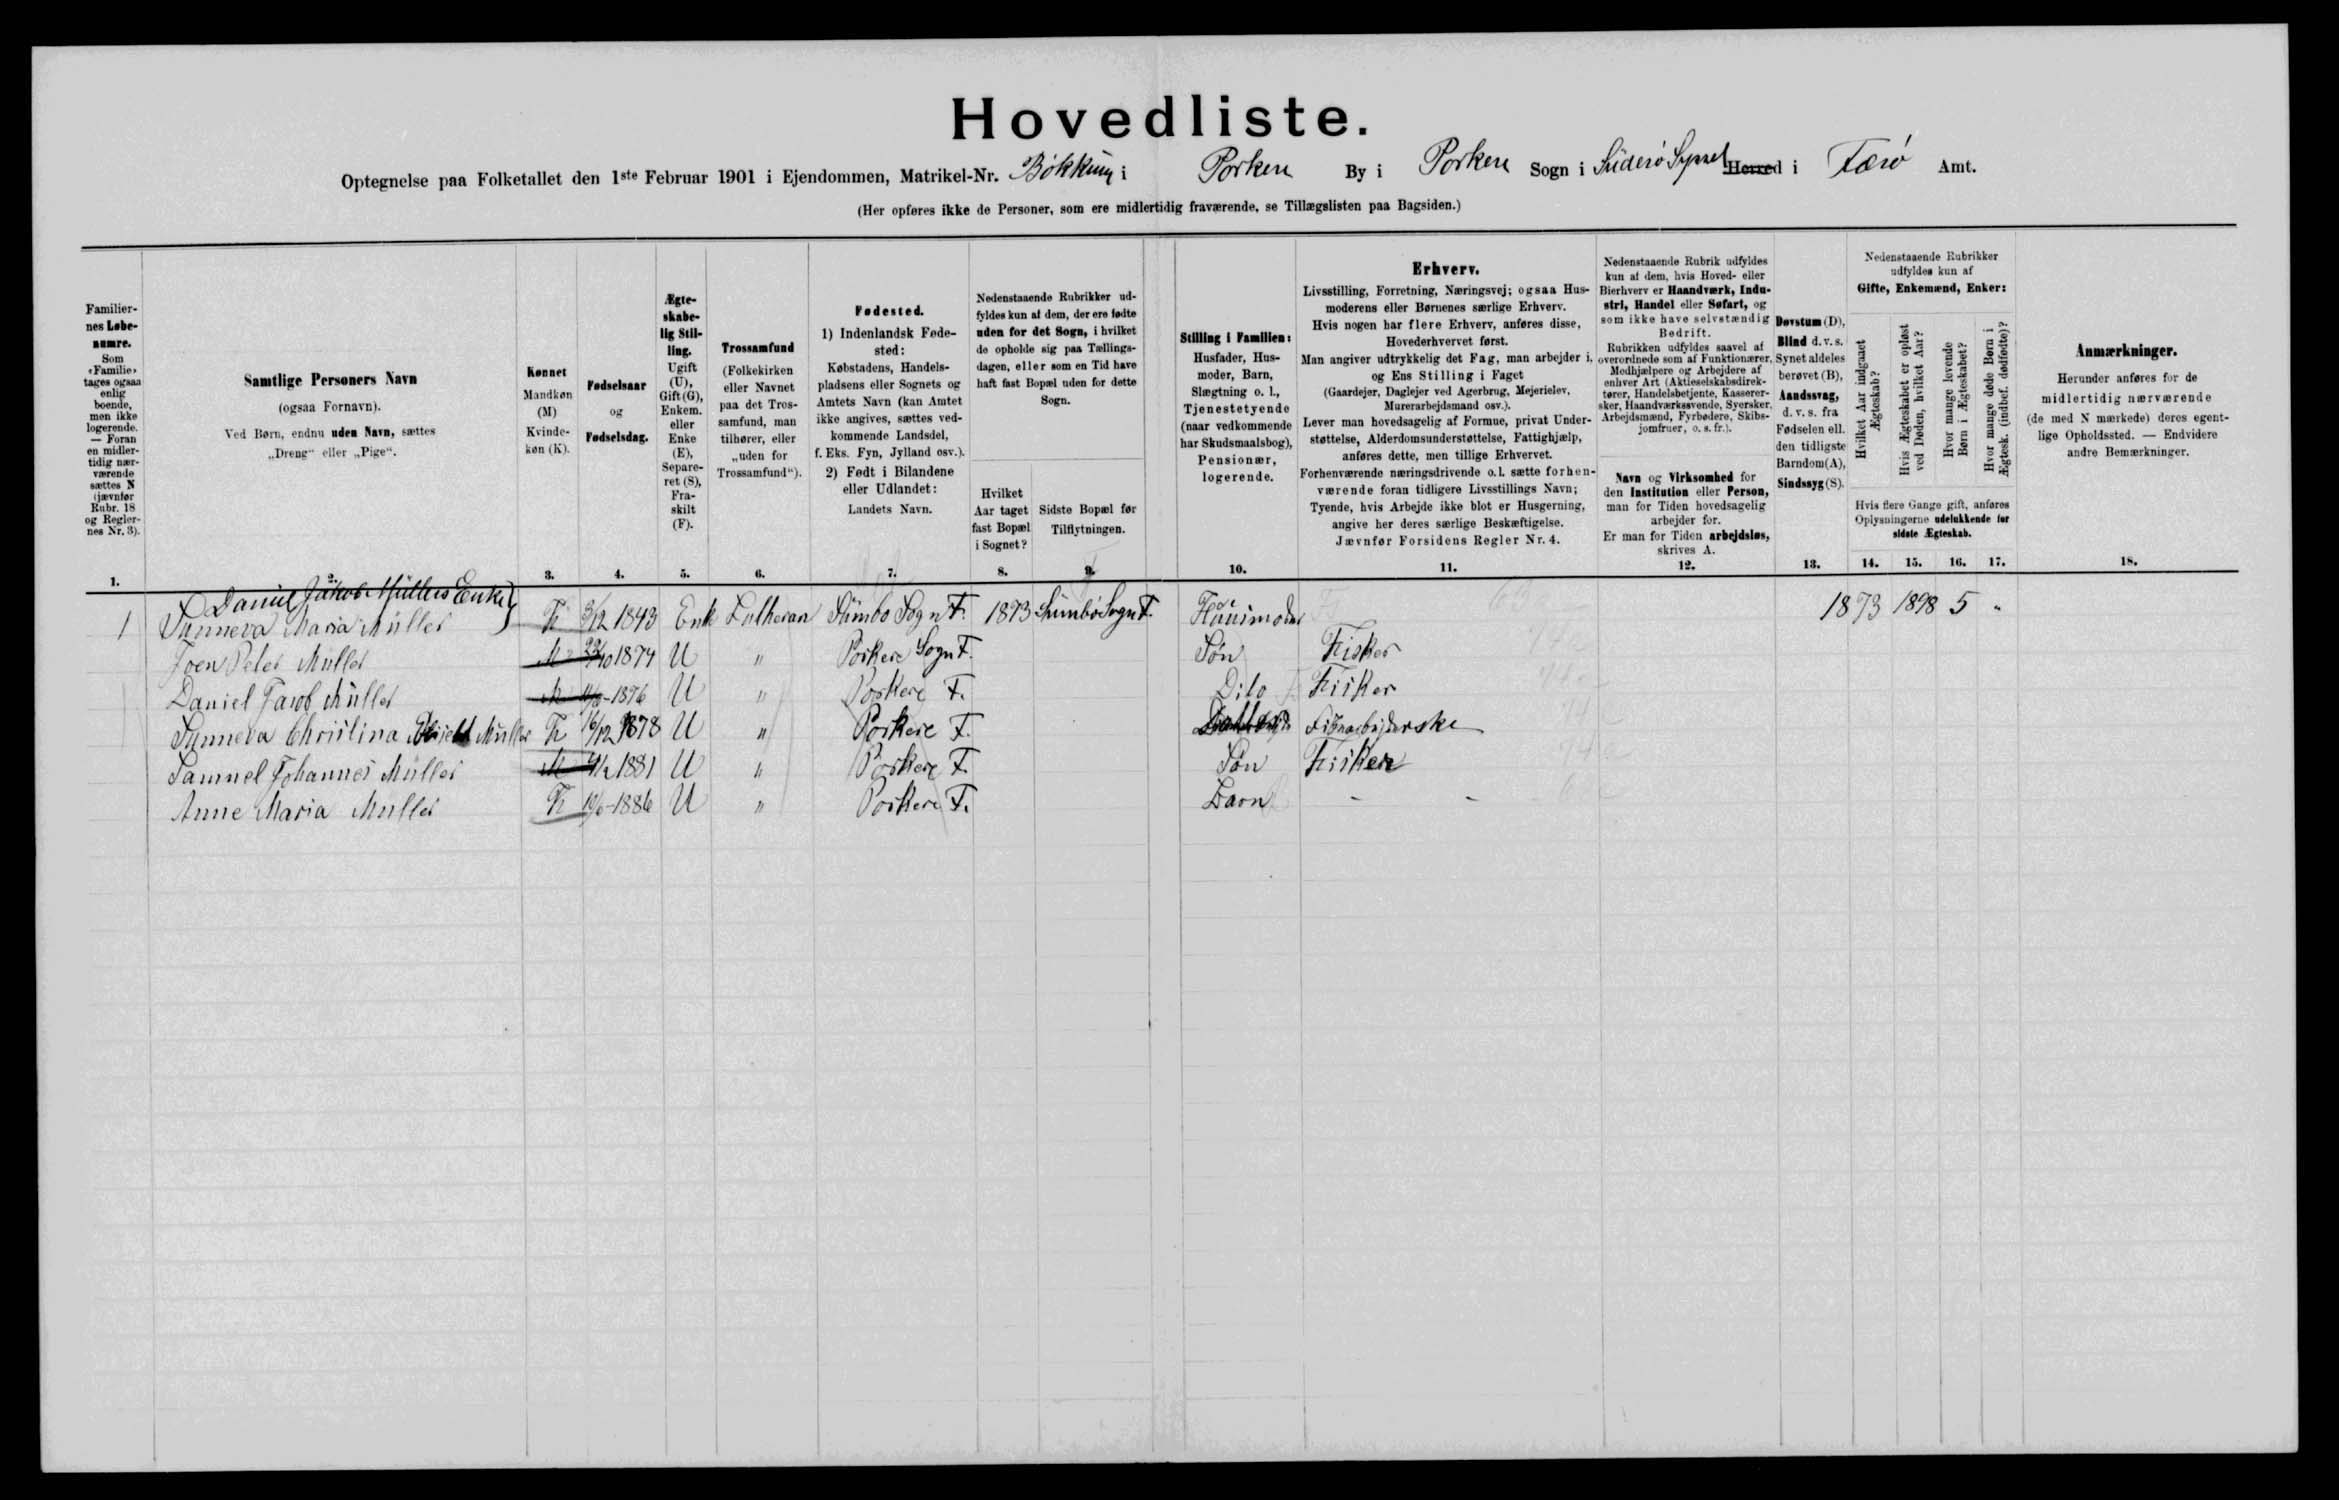 Hovedliste.
Optegnelse paa Folketallet den 1ste Februar 1901 i Ejendommen, Matrikel-Nr. Bökkum i Porkere By i Porkere Sogn i Suderø Syssel Herred i Færø Amt.
(Her opføres ikke de Personer, som ere midlertidig fraværende, se Tillægslisten paa Bagsiden.)
Familier-
nes Løbe-
numre.
Som
«Familie»
tages ogsaa
enlig
boende,
men ikke
logerende.
— Foran
en midler-
tidig nær-
værende
sættes N
(jævnfør
Rubr. 18
og Regler-
nes Nr. 3).
1.
Samtlige Personers Navn
(ogsaa Fornavn).
Ved Børn, endnu uden Navn, sættes
„Dreng“ eller „Pige“.
2.
Kønnet
Mandkøn
(M)
Kvinde-
køn (K).
3.
Fødselsaar
og
Fødselsdag.
4.
Ægte-
skabe-
lig Stil-
ling.
Ugift
(U),
Gift (G),
Enkem.
eller
Enke
(E),
Separe-
ret (S),
Fra-
skilt
(F).
5.
Trossamfund
(Folkekirken
eller Navnet
paa det Tros-
samfund, man
tilhører, eller
„uden for
Trossamfund“).
6.
Fødested.
1) Indenlandsk Føde-
sted:
Købstadens, Handels-
pladsens eller Sognets og
Amtets Navn (kan Amtet
ikke angives, sættes ved-
kommende Landsdel,
f. Eks. Fyn, Jylland osv.).
2) Født i Bilandene
eller Udlandet:
Landets Navn.
7.
Nedenstaaende Rubrikker ud-
fyldes kun af dem, der ere fødte
uden for det Sogn, i hvilket
de opholde sig paa Tællings-
dagen, eller som en Tid have
haft fast Bopæl uden for dette
Sogn.
Hvilket
Aar taget
fast Bopæl
i Sognet?
8.
Sidste Bopæl før
Tilflytningen.
9.
Stilling i Familien:
Husfader, Hus-
moder, Barn,
Slægtning o. l.,
Tjenestetyende
(naar vedkommende
har Skudsmaalsbog),
Pensionær,
logerende.
10.
Erhverv.
Livsstilling, Forretning, Næringsvej; ogsaa Hus-
moderens eller Børnenes særlige Erhverv.
Hvis nogen har flere Erhverv, anføres disse,
Hovederhvervet først.
Man angiver udtrykkelig det Fag, man arbejder i,
og Ens Stilling i Faget
(Gaardejer, Daglejer ved Agerbrug, Mejerielev,
Murerarbejdsmand osv.).
Lever man hovedsagelig af Formue, privat Under-
støttelse, Alderdomsunderstøttelse, Fattighjælp,
anføres dette, men tillige Erhvervet.
Forhenværende næringsdrivende o. l. sætte forhen-
værende foran tidligere Livsstillings Navn;
Tyende, hvis Arbejde ikke blot er Husgerning,
angive her deres særlige Beskæftigelse.
Jævnfør Forsidens Regler Nr. 4.
11.
Nedenstaaende Rubrik udfyldes
kun af dem, hvis Hoved- eller
Bierhverv er Haandværk, Indu-
stri, Handel eller Søfart, og
som ikke have selvstændig
Bedrift.
Rubrikken udfyldes saavel af
overordnede som af Funktionærer,
Medhjælpere og Arbejdere af
enhver Art (Aktieselskabsdirek-
tører, Handelsbetjente, Kasserer-
sker, Haandværkssvende, Syersker,
Arbejdsmænd, Fyrbødere, Skibs-
jomfruer, o. s. fr.).
Navn og Virksomhed for
den Institution eller Person,
man for Tiden hovedsagelig
arbejder for.
Er man for Tiden arbejdsløs,
skrives A.
12.
Døvstum (D),
Blind d. v. s.
Synet aldeles
berøvet (B),
Aandssvag,
d. v. s. fra
Fødselen ell.
den tidligste
Barndom (A),
Sindssyg (S).
13.
Nedenstaaende Rubrikker
udfyldes kun af
Gifte, Enkemænd, Enker:
Hvilket Aar indgaaet
Ægteskab?
Hvis Ægteskabet er opløst
ved Døden, hvilket Aar?
Hvor mange levende
Børn i Ægteskabet?
Hvor mange døde Børn i
Ægtesk. (indbef. dødfødte)?
Hvis flere Gange gift, anføres
Oplysningerne udelukkende for
sidste Ægteskab.
14. 15. 16. 17.
Anmærkninger.
Herunder anføres for de
midlertidig nærværende
(de med N mærkede) deres egent-
lige Opholdssted. — Endvidere
andre Bemærkninger.
18.
Daniel Jakob Müllers Enke
1 Sunneva Maria Müller K 3/12 1843 Enk Lutheran Sümbö Sogn F. 1873 Sumbö Sogn F. Huusmoder 1873 1898 5 "
Joen Peter Müller M 22/10 1874 U " Porkere Sogn F. Søn Fisker
Daniel Jacob Müller M 1876 U " Porkere F. Dito Fisker
Sunneva Christina Müller K 16/12 1878 U " Porkere F.
Samuel Johannes Müller M 1881 U " Porkere F. Søn Fisker
Anne Maria Müller K 10/6 - 1886 U " Porkere F. Barn - -